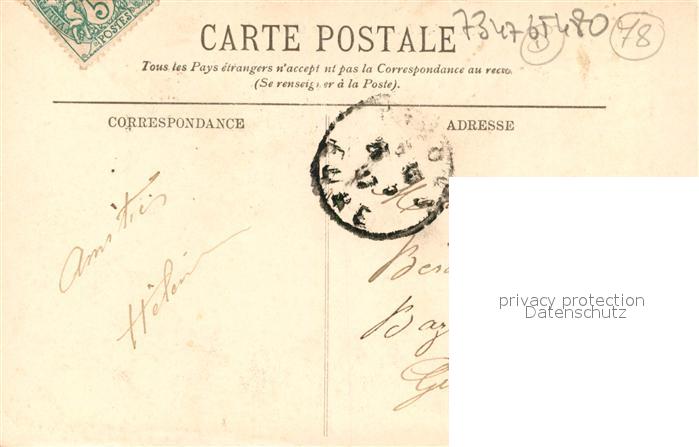 5
POSTES
CARTE POSTALE
734765480
78
Tous les Pays étrangers n'accept nt pas la Correspondance au recto
(Se renseigner à la Poste).
CORRESPONDANCE
ADRESSE
Amitiés
Hélène
M
Baz
privacy protection
Datenschutz